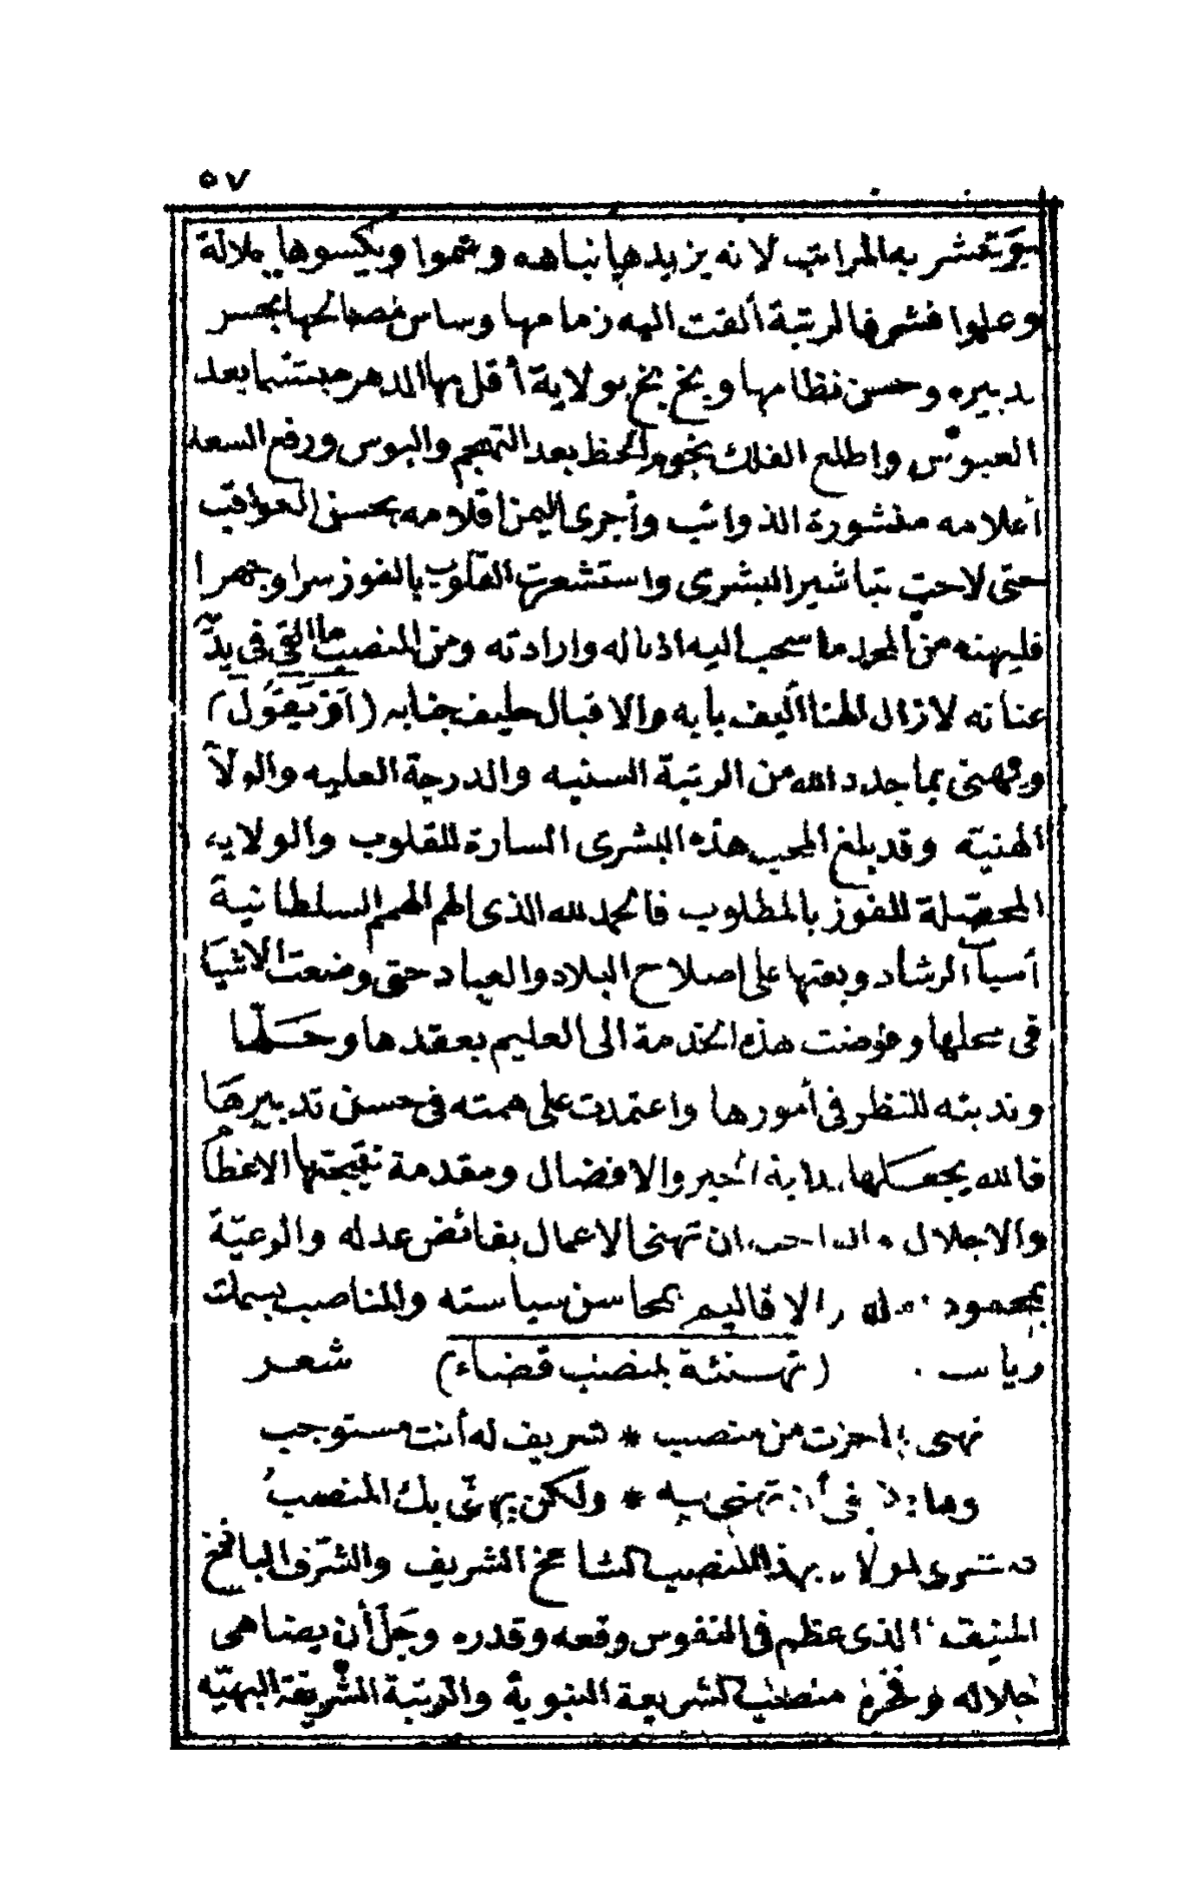 ٥٧
وتعشر به المراتب لانه يزيدها نباهه ونموا ويكسوها جلالة
وعلوا فشرفا لرتبة ألقت اليه زمامها وساس مصالحها بحسن
تدبيره وحسن نظامها وبخ بخ بولاية أقل بها الدهر مبتسما بعد
العبوس واطلع الفلك نجوم الحظ بعد التهجم والبوس ورفع السعد
أعلامه منشورة الذوائب وأجرى اليمن اقلامه بحسن العواقب
حتى لاحت تباشير البشرى واستشعرت القلوب بالفوز سرا وجهرا
فليهنه من المجد ما سحب اليه اذياله وارادته ومن المنصب ما القى فى يد
عنانه لازال الهنا أليف بابه والاقبال حليف جنابه (آخر يقول)
ومهنى بما جدد الله من الرتبة السنيه والدرجة العليه والولا
الهنيّه وقد بلغ المحب هذه البشرى السارة للقلوب والولايه
المحصلة للفوز بالمطلوب فالحمد لله الذى ألهم الهمم السلطانية
أسبآ الرشاد وبعثها على اصلاح البلاد والعباد حتى وضعت الاشيا
فى محلها وفوضت هذه الخدمة الى العليم بعقدها وحَلّها
وندبته للنظر فى أمورها واعتمدت على همته فى حسن تدبيرها
فالله يجعلها بداية الخير والافضال ومقدمة نتيجتها الاعظا
والاجلال والواجب ان تهنى الاعمال بفائض عدله والرعيّة
بمحمود فعله والاقاليم بمحاسن سياسته والمناصب بسمات
رياسته (تهنئة بمنصب قضاء) شعر
نهنى بما حزت من منصب * شريف له أنت مستوجب
وما أن تهنى به * ولكن يهنّى بك المنصب
بشرى لمولانا بهذا المنصب الشامخ الشريف والشرف الباذخ
المنيف الذى عظم فى النفوس وقعه وقدره وجَلّ أن يضاهى
جلاله وفخره منصب الشريعة النبوية والرتبة الشريفة البهيّه